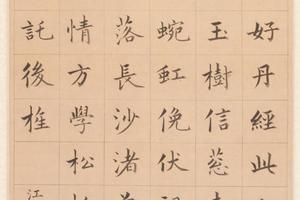 好丹經此
玉樹信慈
蜿虹俛伏
落長沙渚
情方學松
託後旌
江